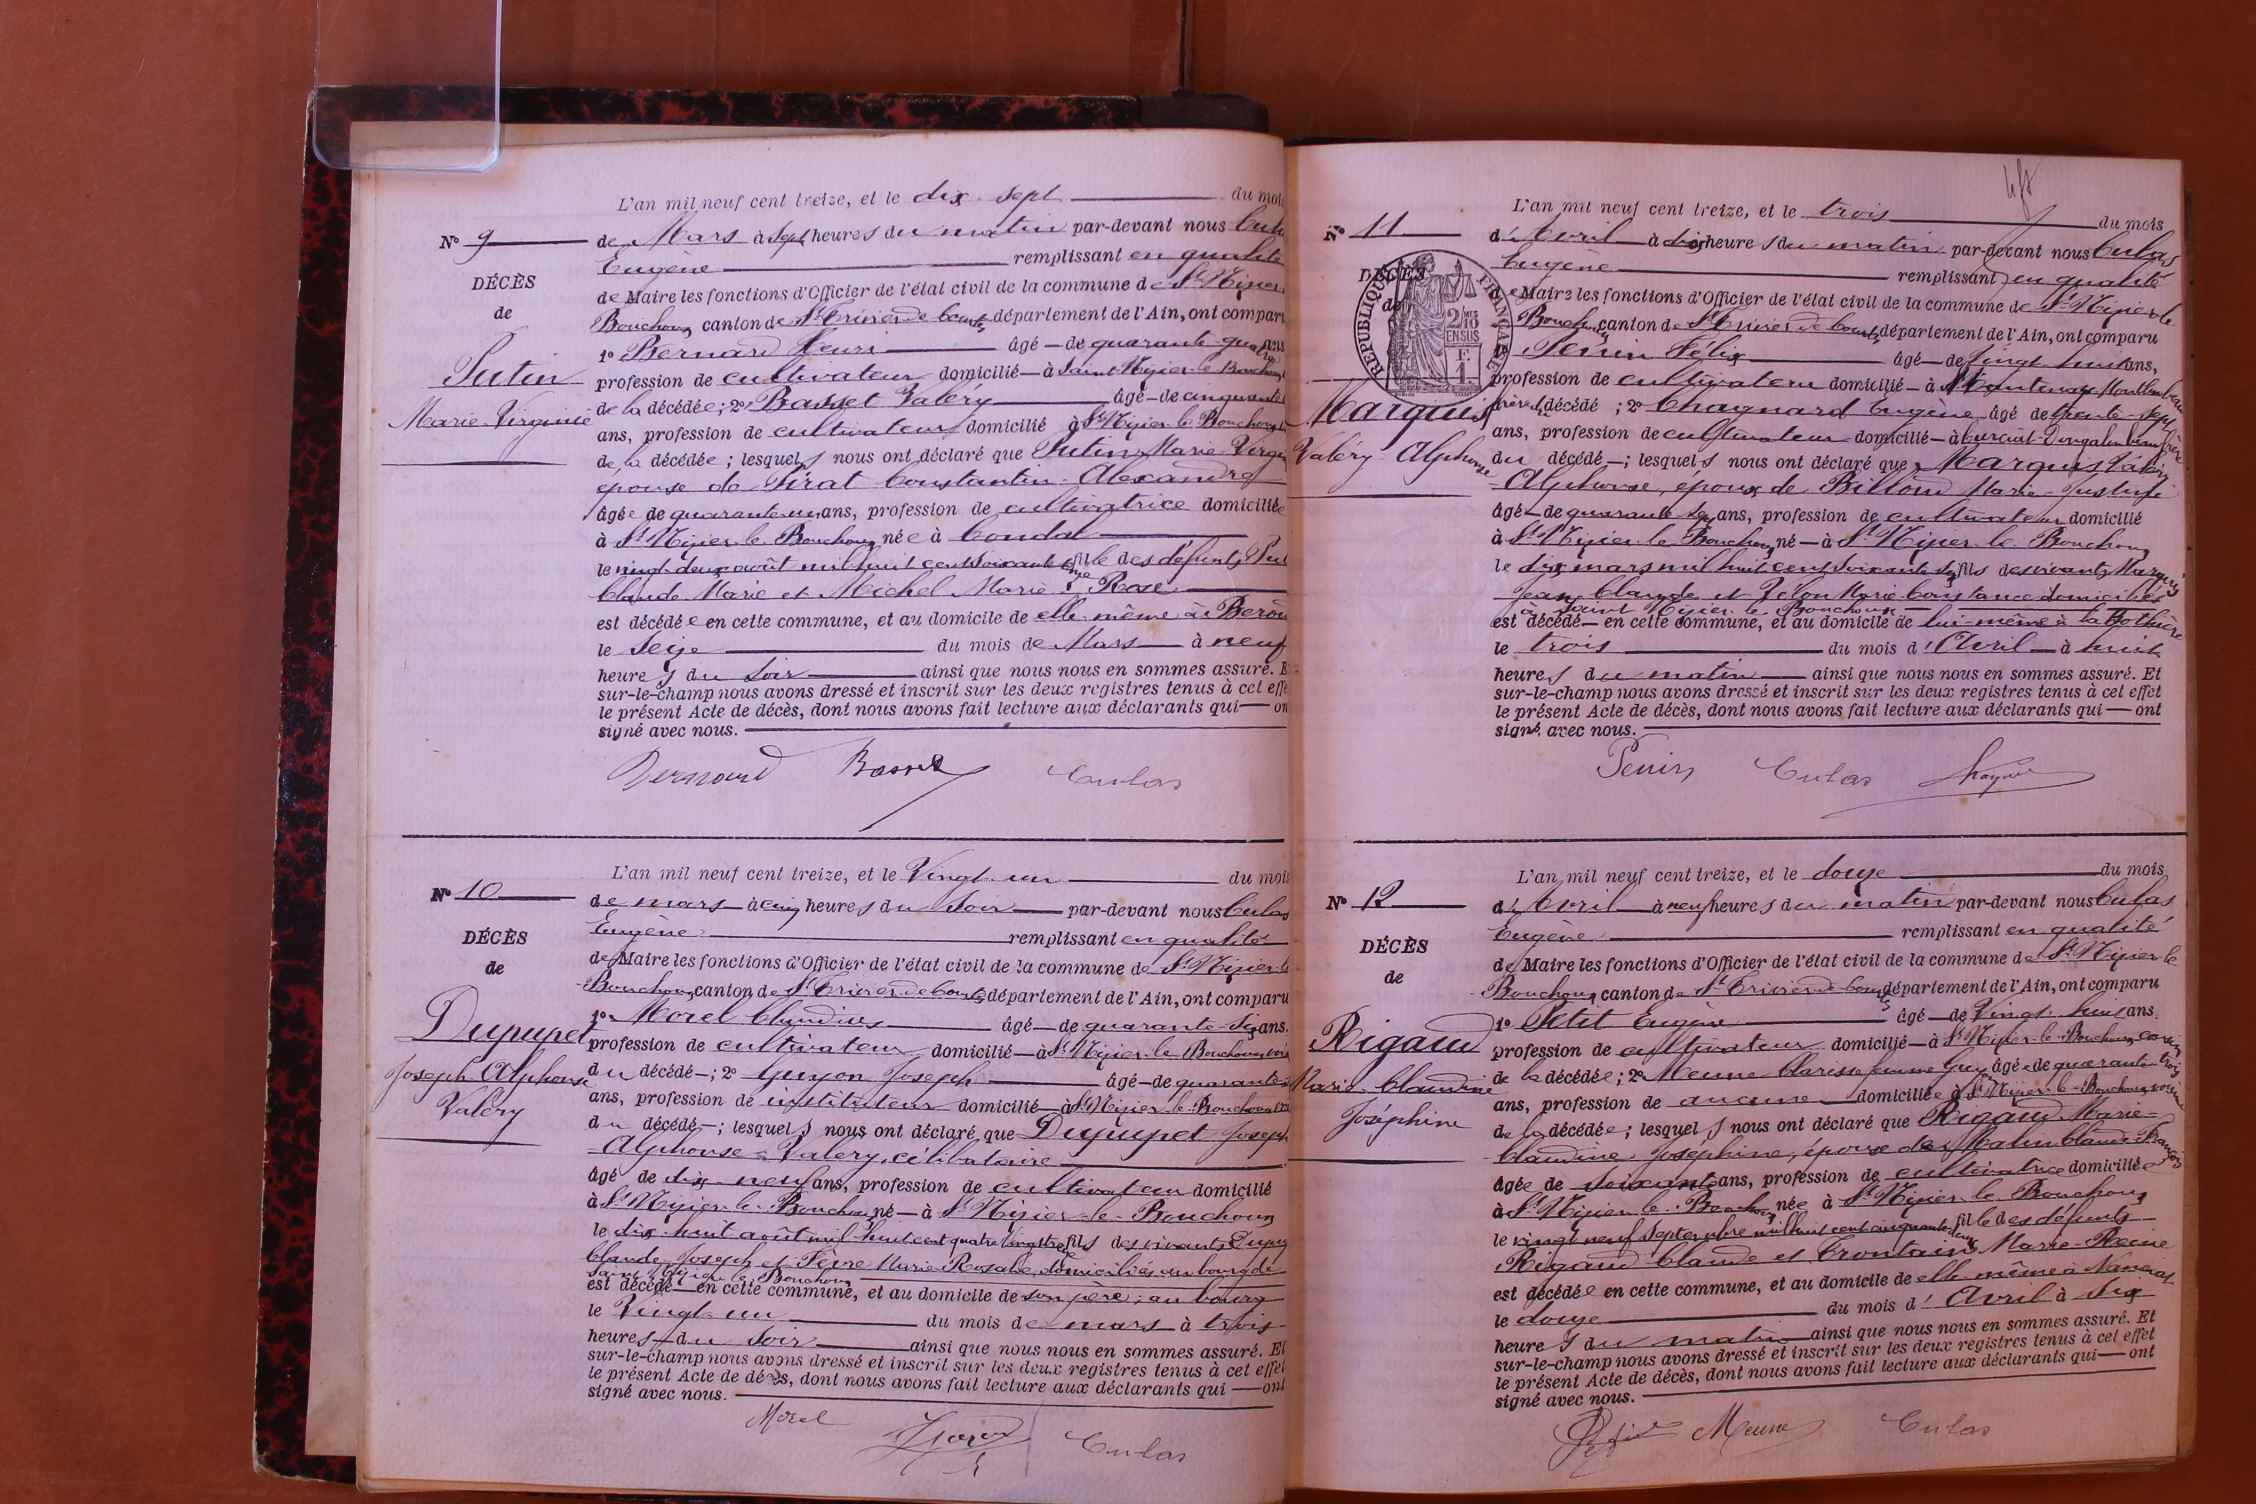 L'an mil neuf cent treize, et le dix-sept du mois
N° 9 de Mars à sept heures du matin par-devant nous
Eugène remplissant en qualité
DÉCÈS
de Maire les fonctions d'Officier de l'état civil de la commune de St Nizier
de
Bouchoux canton de St Trivier de Courtes département de l'Ain, ont comparu
1° Bernard Henri âgé de quarante-quatre ans
Putin
profession de cultivateur domicilié à Saint Nizier-le Bouchoux
Marie-Virginie
de la décédée; 2° Basset Valéry âgé de cinquante
ans, profession de cultivateur domicilié à St Nizier-le-Bouchoux
de la décédée; lesquels nous ont déclaré que Putin Marie Virgi
épouse de Pirat Constantin-Alexandre
âgée de quarante un ans, profession de cultivatrice domiciliée
à St Nizier-le-Bouchoux née à Condal
le vingt-deux août mil huit cent soixante onze fille des défunts Put
Claude Marie et Michel Marie Rose
est décédée en cette commune, et au domicile de elle-même à
le seize du mois de Mars à neuf
heures du soir ainsi que nous nous en sommes assuré. Et
sur-le-champ nous avons dressé et inscrit sur les deux registres tenus à cet effe
le présent Acte de décès, dont nous avons fait lecture aux déclarants qui on
signé avec nous.
Bernard Basset Culas
L'an mil neuf cent treize, et le Vingt-un du mois
N° 10 de mars à cinq heures du soir par-devant nous Culas
Eugène remplissant en qualité
DÉCÈS
de Maire les fonctions d'Officier de l'état civil de la commune de St Nizier-le
de
Bouchoux canton de St Trivier de Courtes département de l'Ain, ont comparu
1° Morel Claudius âgé de quarante-six ans.
Dupupet
profession de cultivateur domicilié à St Nizier-le Bouchoux voisin
Joseph Alphonse
du décédé; 2° Guyon Joseph âgé de quarante
Valéry
ans, profession de instituteur domicilié à St Nizier-le-Bouchoux
du décédé; lesquels nous ont déclaré que Dupupet Joseph
Alphonse Valery, célibataire
âgé de dix-neuf ans, profession de cultivateur domicilié
à St Nizier-le-Bouchoux né à St Nizier-le-Bouchoux
le dix-huit août mil huit cent quatre vingt treize fils des vivants Dupup
Claude Joseph et Fèvre Marie-Rosalie domiciliés au bourg de
Saint Nizier le Bouchoux
est décédé en cette commune, et au domicile de son père, au bourg
le Vingt-un du mois de mars à trois
heures du soir ainsi que nous nous en sommes assuré. Et
sur-le-champ nous avons dressé et inscrit sur les deux registres tenus à cet effet
le présent Acte de décès, dont nous avons fait lecture aux déclarants qui ont
signé avec nous.
Morel Guyon Culas
L'an mil neuf cent treize, et le trois du mois
N° 11 d'Avril à dix heures du matin par-devant nous Culas
Eugène remplissant en qualité
DÉCÈS
de Maire les fonctions d'Officier de l'état civil de la commune de St Nizier le
de
RÉPUBLIQUE FRANÇAISE
Bouchoux canton de St Trivier de Courtes département de l'Ain, ont comparu
Perrin Félix âgé de vingt huit ans,
profession de cultivateur domicilié à
Marquis
décédé; 2° Chagnard Eugène âgé de trente-sept
Valéry Alphonse
ans, profession de cultivateur domicilié à
du décédé; lesquels nous ont déclaré que Marquis Valéry
Alphonse, époux de Billoud Marie-Justine
âgé de quarante six ans, profession de cultivateur domicilié
à St Nizier-le Bouchoux né à St Nizier-le Bouchoux
le dix mars mil huit cent soixante sept fils des vivants Marquis
Jean Claude et Marie Constance domiciliés
à Saint Nizier-le-Bouchoux
est décédé en cette commune, et au domicile de lui-même à
le trois du mois d'Avril à huit
heures du matin ainsi que nous nous en sommes assuré. Et
sur-le-champ nous avons dressé et inscrit sur les deux registres tenus à cet effet
le présent Acte de décès, dont nous avons fait lecture aux déclarants qui ont
signé avec nous.
Perrin Culas Chagnard
L'an mil neuf cent treize, et le douze du mois
N° 12 d'Avril à neuf heures du matin par-devant nous Culas
Eugène remplissant en qualité
DÉCÈS
de Maire les fonctions d'Officier de l'état civil de la commune de St Nizier-le
de
Bouchoux canton de St Trivier de Courtes département de l'Ain, ont comparu
1° Petit Eugène âgé de Vingt-huit ans.
Rigaud
profession de cultivateur domicilié à St Nizier-le-Bouchoux cousin
Marie-Claudine
de la décédée; 2° Meune Clarisse femme Guy âgée de quarante-trois
Joséphine
ans, profession de aucune domiciliée à St Nizier-le-Bouchoux voisine
de la décédée; lesquels nous ont déclaré que Rigaud Marie-
Claudine Joséphine, épouse de Claude François
âgée de soixante ans, profession de cultivatrice domiciliée
à St Nizier-le-Bouchoux née à St Nizier-le Bouchoux
le vingt neuf Septembre mil huit cent cinquante deux fille des défunts
Rigaud Claude et Marie-Reine
est décédée en cette commune, et au domicile de elle-même à
le douze du mois d'Avril à six
heures du matin ainsi que nous nous en sommes assuré. Et
sur-le-champ nous avons dressé et inscrit sur les deux registres tenus à cet effet
le présent Acte de décès, dont nous avons fait lecture aux déclarants qui ont
signé avec nous.
Petit Meune Culas